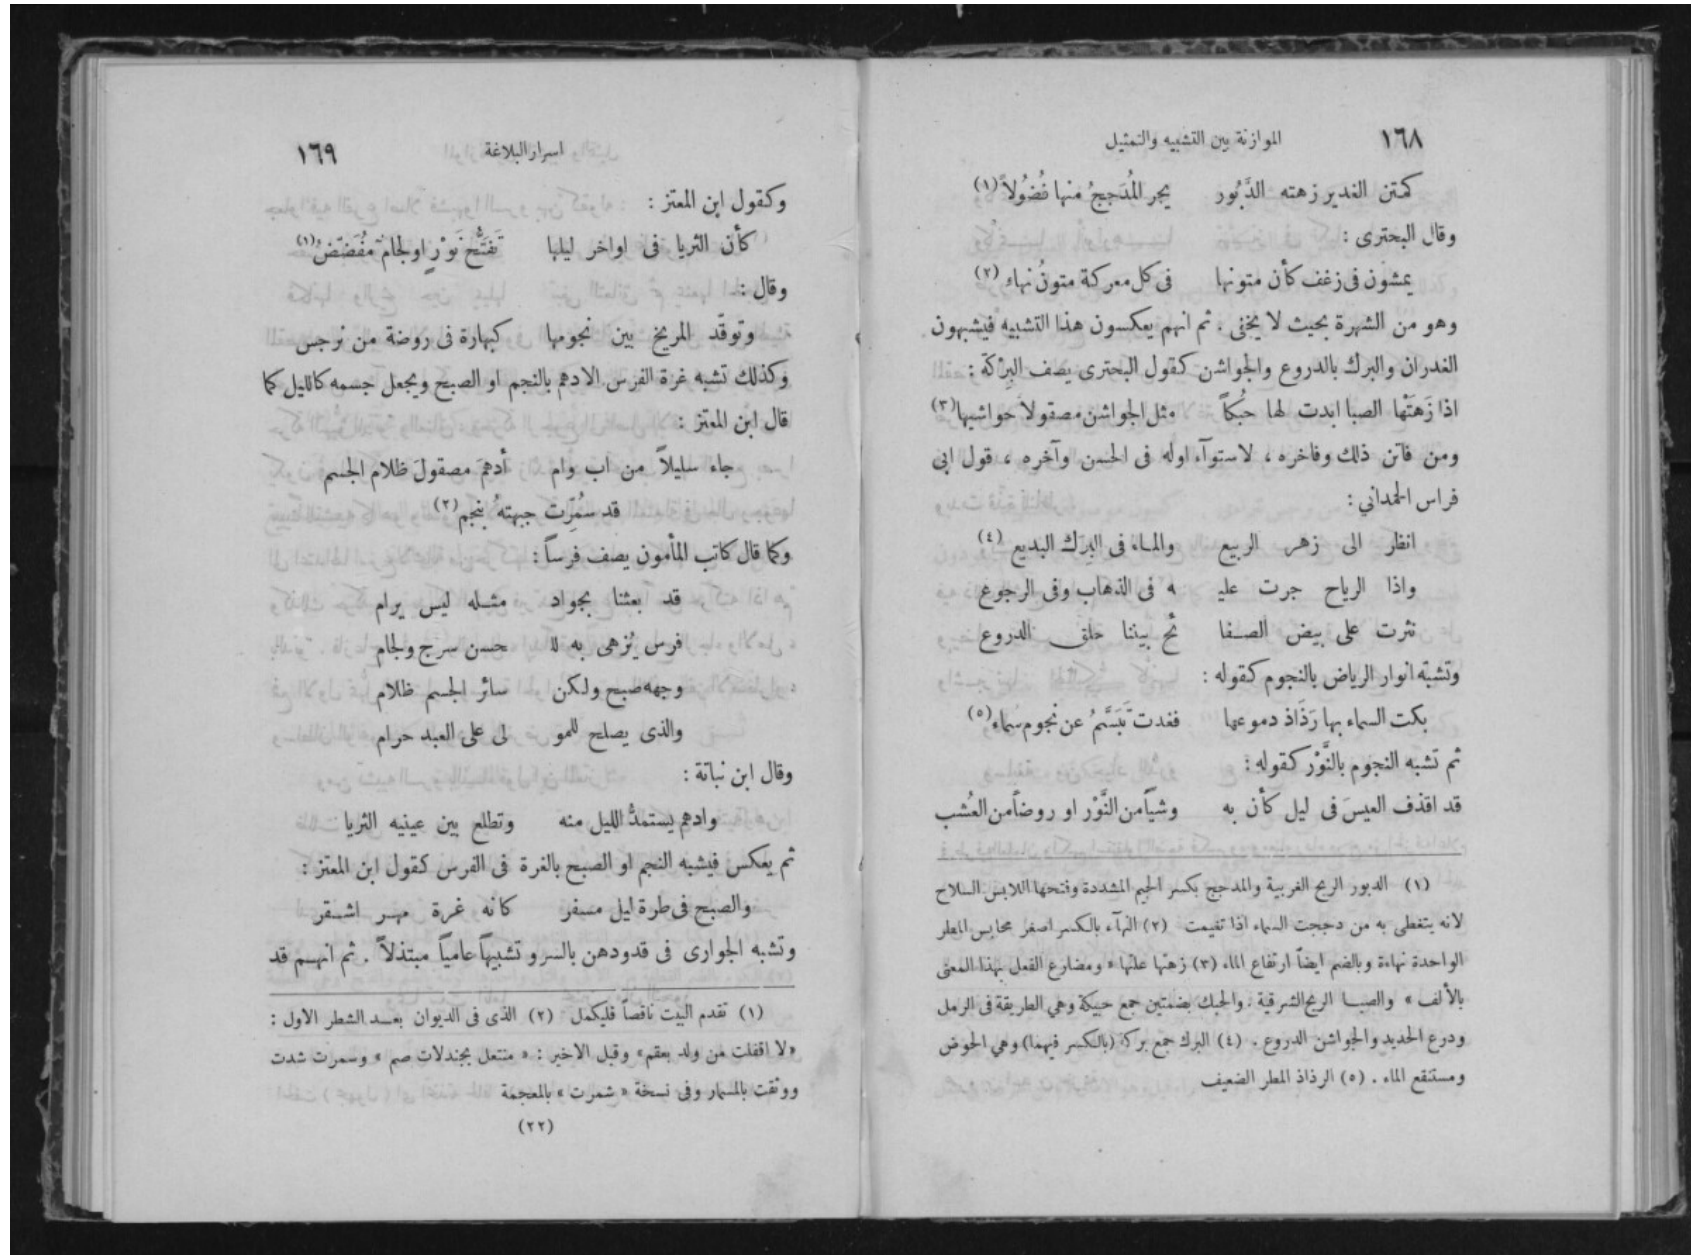 ١٦٨ الموازنة بين التشبيه والتمثيل
كمتن الغدير زهته الدَّبُور يجر المُدَججُ منها فُضُولاً (١)
وقال البحترى :
يمشون فى زغف كأن متونها فى كل معركة متونُ نهاء (٢)
وهو من الشهرة بحيث لا يخفى . ثم انهم يعكسون هذا التشبيه فيشبهون
الغدران والبرك بالدروع والجواشن كقول البحترى يصف البِرْكَة :
اذا زَهَتْها الصبا ابدت لها حُبُكاً مثل الجواشن مصقولاً حواشيها (٣)
ومن فاتن ذلك وفاخره ، لاستوآء اوله فى الحسن وآخره ، قول ابى
فراس الحمداني :
انظر الى زهر الربيع والماء فى البِرَك البديع (٤)
واذا الرياح جرت عليـ ـه فى الذهاب وفى الرجوع
نثرت على بيض الصفا ئح بيننا حلق الدروع
وتشبّه انوار الرياض بالنجوم كقوله :
بكت السماء بها رَذَاذ دموعها فغدت تَبَسَّمُ عن نجوم سماء (٥)
ثم تشبه النجوم بالنَّوْر كقوله :
قد اقذف العيسَ فى ليل كأن به وشياً من النَّوْر او روضاً من العُشب
(١) الدبور الريح الغربية والمدجج بكسر الجيم المشددة وفتحها اللابس السلاح
لانه يتغطى به من دججت السماء اذا تغيمت (٢) النهآء بالكسر اصغر محابس المطر
الواحدة نهاءة وبالضم ايضاً ارتفاع الماء (٣) زهتها علتها « ومضارع الفعل بهذا المعنى
بالألف » والصبا الريح الشرقية . والحبك بضمتين جمع حبيكة وهي الطريقة فى الرمل
ودرع الحديد والجواشن الدروع . (٤) البرك جمع بركة (بالكسر فيهما) وهي الحوض
ومستنقع الماء . (٥) الرذاذ المطر الضعيف
اسرار البلاغة ١٦٩
وكقول ابن المعتز :
كأن الثريا فى اواخر ليلها تَفتُّحُ نَوْرٍ او لجام مُفَضّضُ (١)
وقال :
وتوقّد المريخ بين نجومها كبهارة فى روضة من نرجس
وكذلك تشبه غرة الفرس الادهم بالنجم او الصبح ويجعل جسمه كالليل كما
قال ابن المعتز :
جاء سليلاً من اب وام أدهمَ مصقولَ ظلام الجسم
قد سُمِّرت جبهتهُ بنجم (٢)
وكما قال كاتب المأمون يصف فرساً :
قد بعثنا بجواد مثله ليس يرام
فرس يُزهى به للـ ـحسن سرج ولجام
وجهه صبح ولكن سائر الجسم ظلام
والذى يصلح للمو لى على العبد حرام
وقال ابن نباتة :
وادهم يستمدُّ الليل منه وتطلع بين عينيه الثريا
ثم يعكس فيشبه النجم او الصبح بالغرة فى الفرس كقول ابن المعتز :
والصبح فى طرة ليل مسفر كانه غرة مهر اشقر
وتشبه الجوارى فى قدودهن بالسرو تشبيهاً عامياً مبتذلاً . ثم انهم قد
(١) تقدم البيت ناقصاً فليكمل (٢) الذى فى الديوان بعد الشطر الاول :
«لا اقفلت من ولد بعقم» وقبل الاخير : « منتعل بجندلات صم » وسمرت شدت
ووثقت بالمسمار وفى نسخة « شمرت » بالمعجمة
(٢٢)